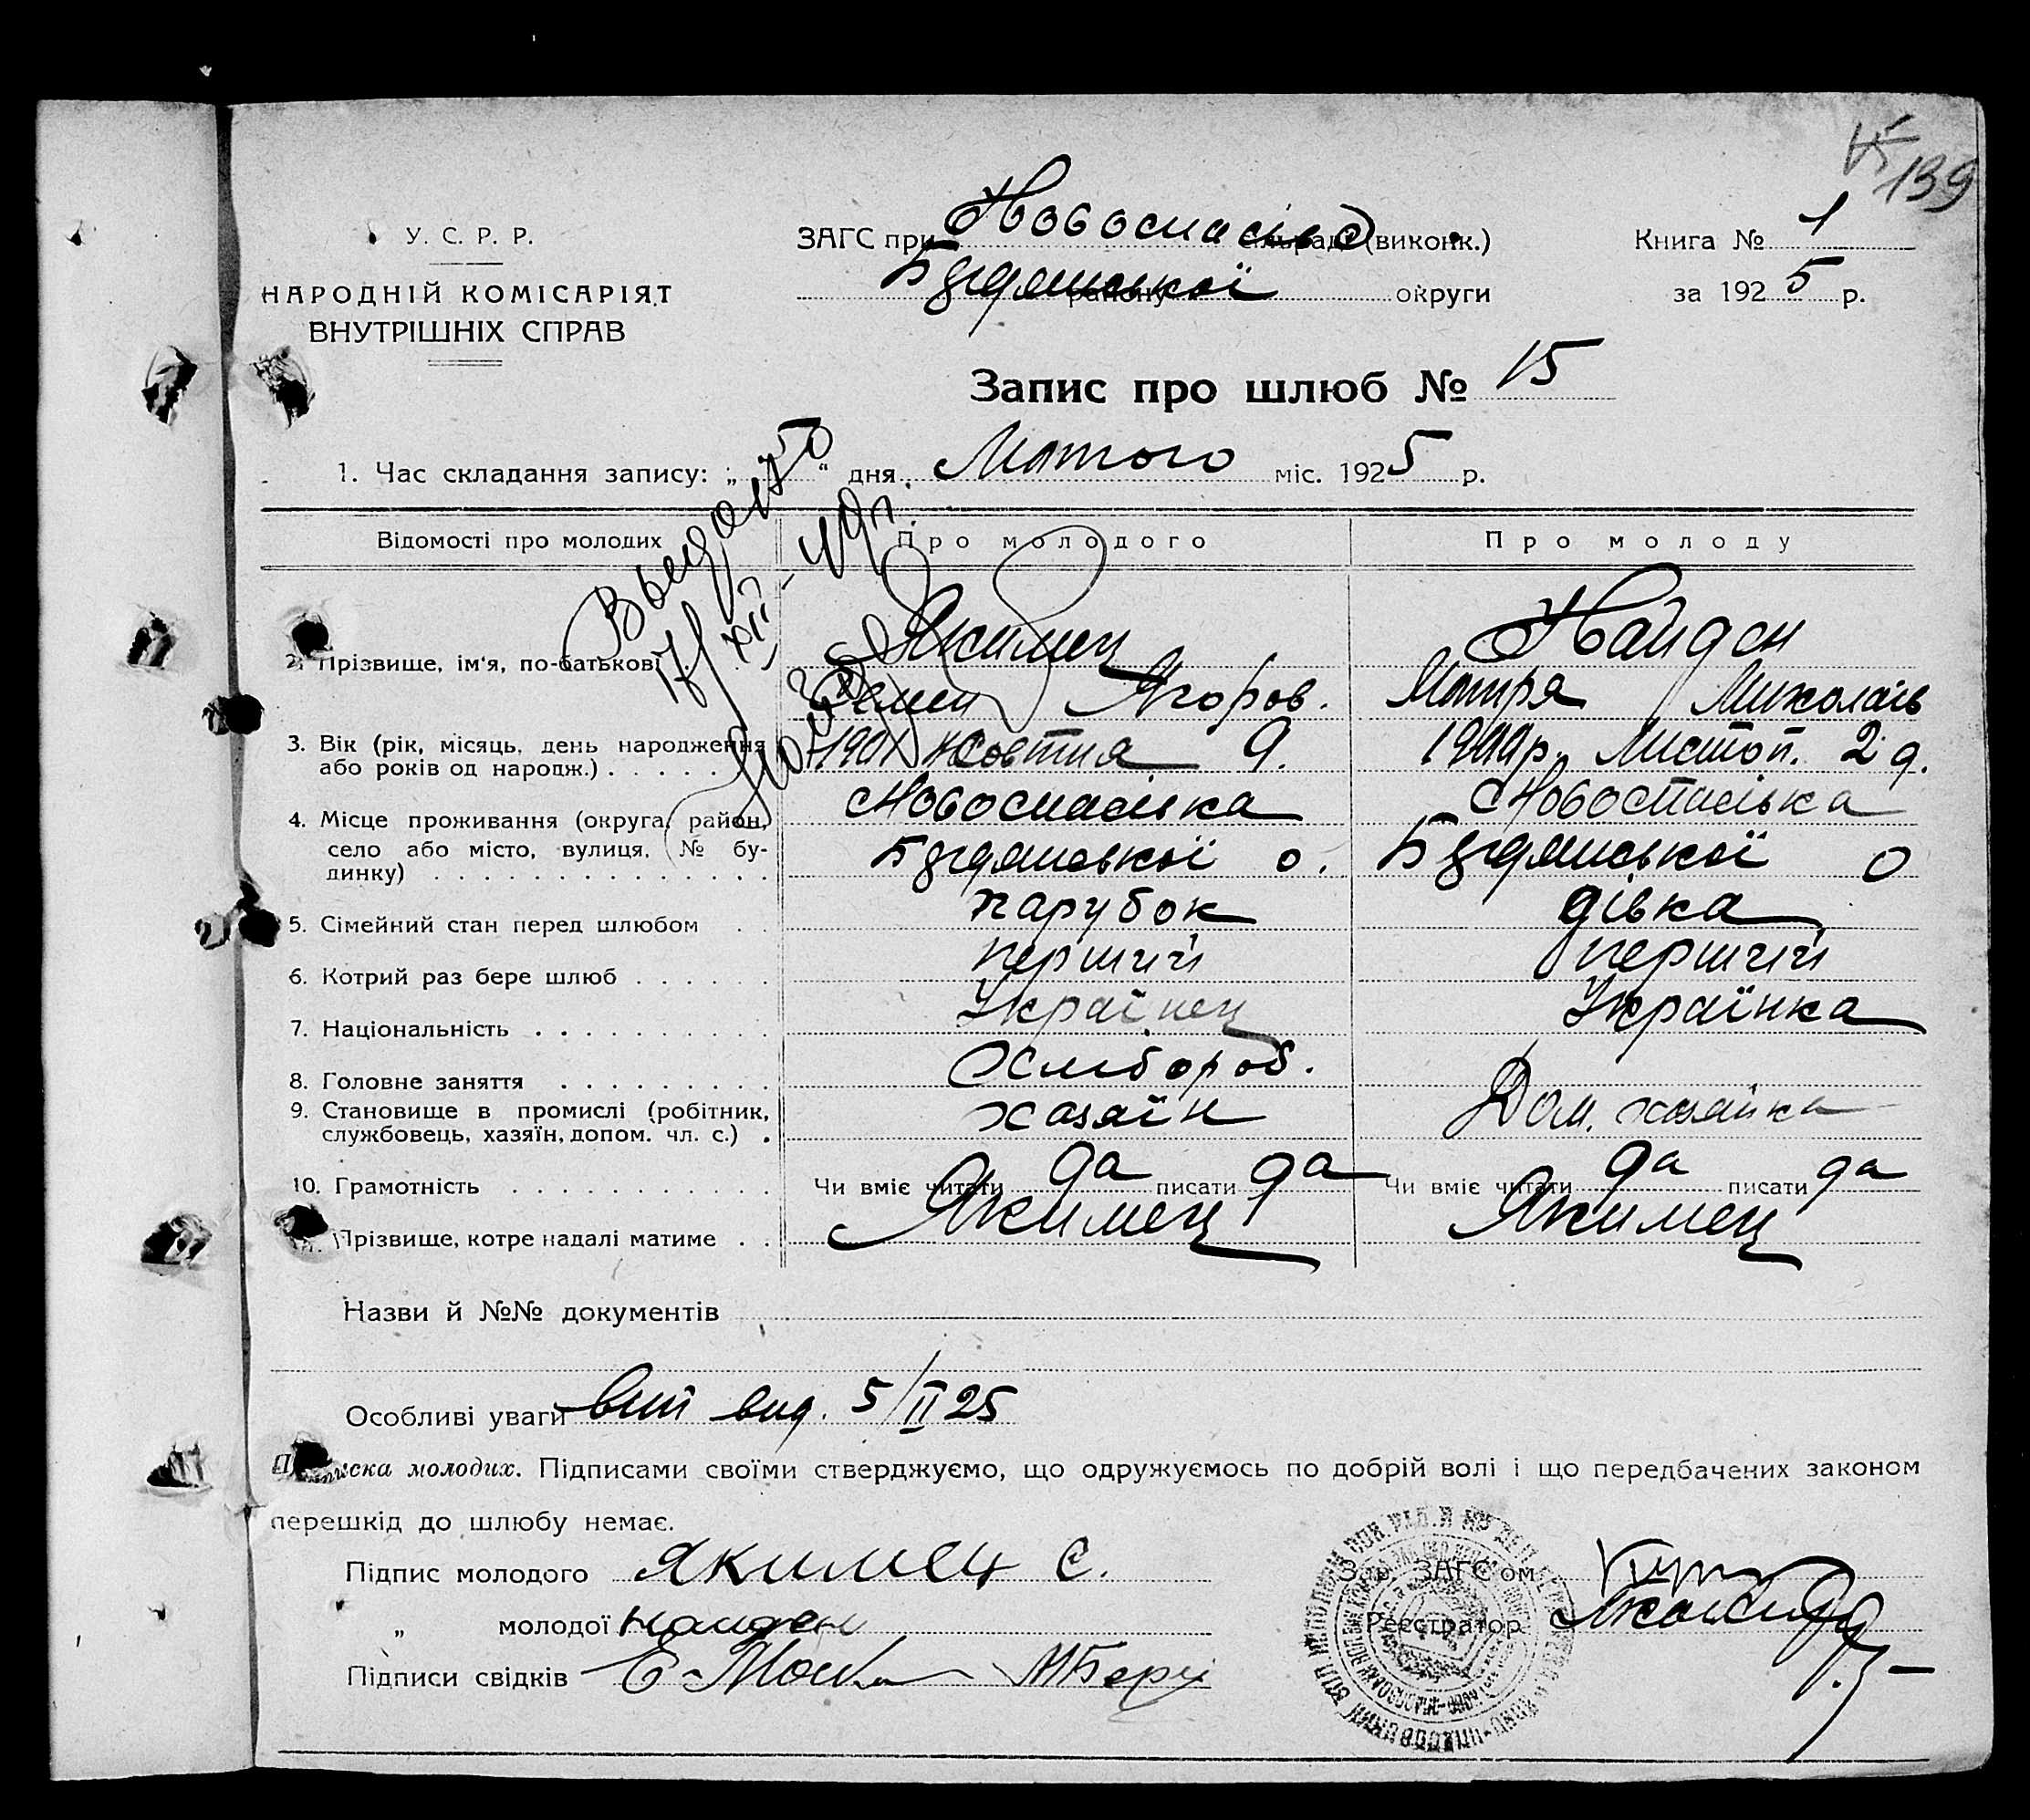 139
У. С. Р. Р.
НАРОДНІЙ КОМІСАРІЯТ
ВНУТРІШНІХ СПРАВ
ЗАГС при Новоспасів (виконк.)
округи
Книга № 1
за 1925 р.
Запис про шлюб № 15
1. Час складання запису: „5“ дня Лютого міс. 1925 р.
Відомості про молодих
Про молодого
Про молоду
2. Прізвище, ім'я, по-батькові
Якимец
Семен Ягоров.
Найден
Миколаїв
3. Вік (рік, місяць, день народження
або років од народж.)
1901 Жовтня 9.
Листоп. 2 д.
4. Місце проживання (округа, район,
село або місто, вулиця, № бу-
динку)
Новоспаська
о.
Новоспаська
о
5. Сімейний стан перед шлюбом
парубок
дівка
6. Котрий раз бере шлюб
перший
перший
7. Національність
Українец
Українка
8. Головне заняття
Хлибороб.
9. Становище в промислі (робітник,
службовець, хазяїн, допом. чл. с.)
хазяїн
Дом. хазяйка
10. Грамотність
Чи вміє читати да писати да
Чи вміє читати да писати да
11. Прізвище, котре надалі матиме
Якимец
Якимец
Назви й №№ документів
Особливі уваги вип вид. 5/II 25
Підписка молодих. Підписами своїми стверджуємо, що одружуємось по добрій волі і що передбачених законом
перешкід до шлюбу немає.
Підпис молодого Якимец С.
„ молодої Найден
Підписи свідків
Зав. ЗАГС'ом
Реєстратор